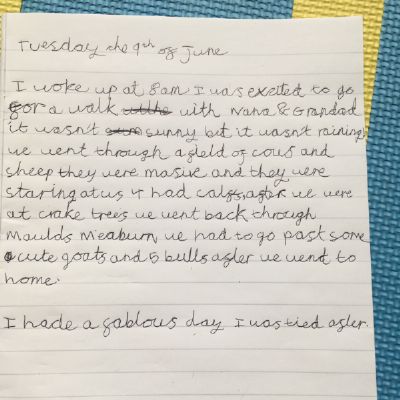 Tuesday the 9th of June
I woke up at 8am I was excited to go
for a walk with Nana & Grandad
it wasn't sunny but it wasn't raining
we went through a field of cows and
sheep they were masive and they were
staring at us 4 had calfs, after we were
at crake trees we went back through
Maulds Meaburn, we had to go past some
cute goats and 5 bulls after we went to
home.
I hade a fablous day I was tied after.